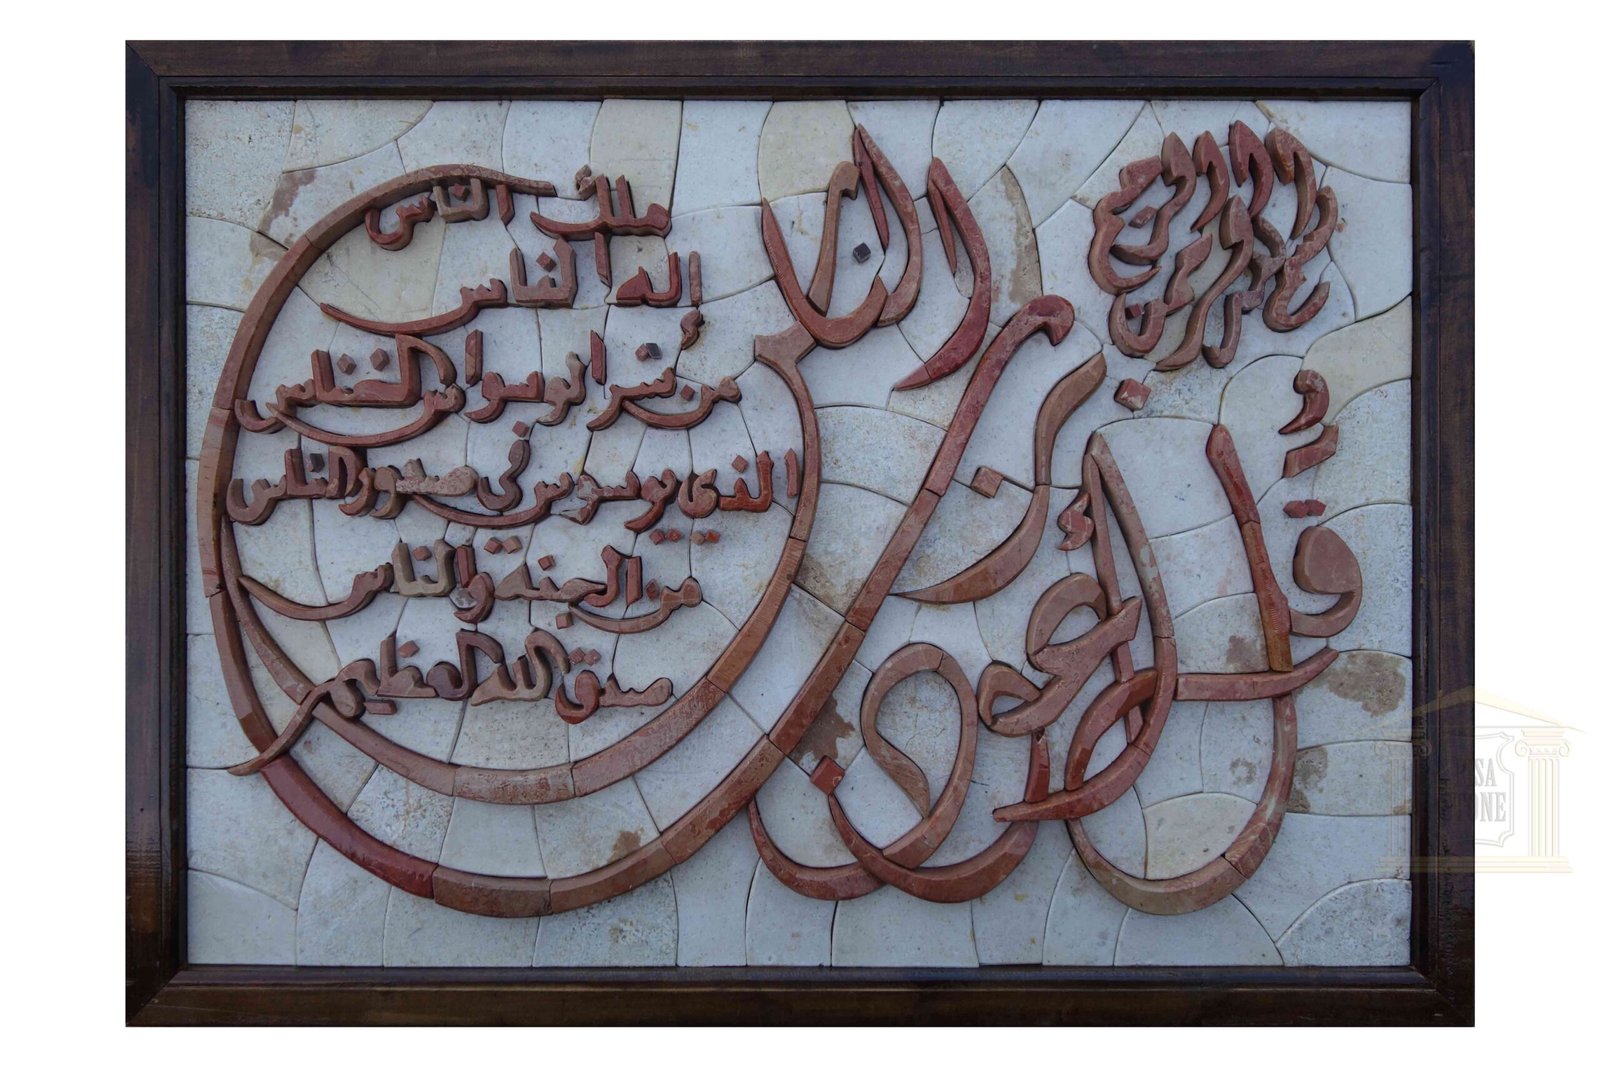 بسم الله الرحمن الرحيم
قل أعوذ برب الناس
ملك الناس
اله الناس
من شر الوسواس الخناس
الذي يوسوس في صدور الناس
من الجنة والناس
صدق الله العظيم